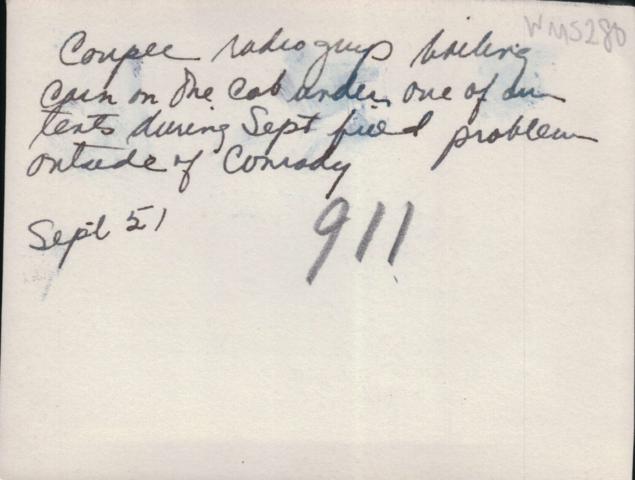 WMS280
Couple radio guys boiling
corn on the cob under one of our
tents during Sept field problem
outside of Conrady
Sept 51
911